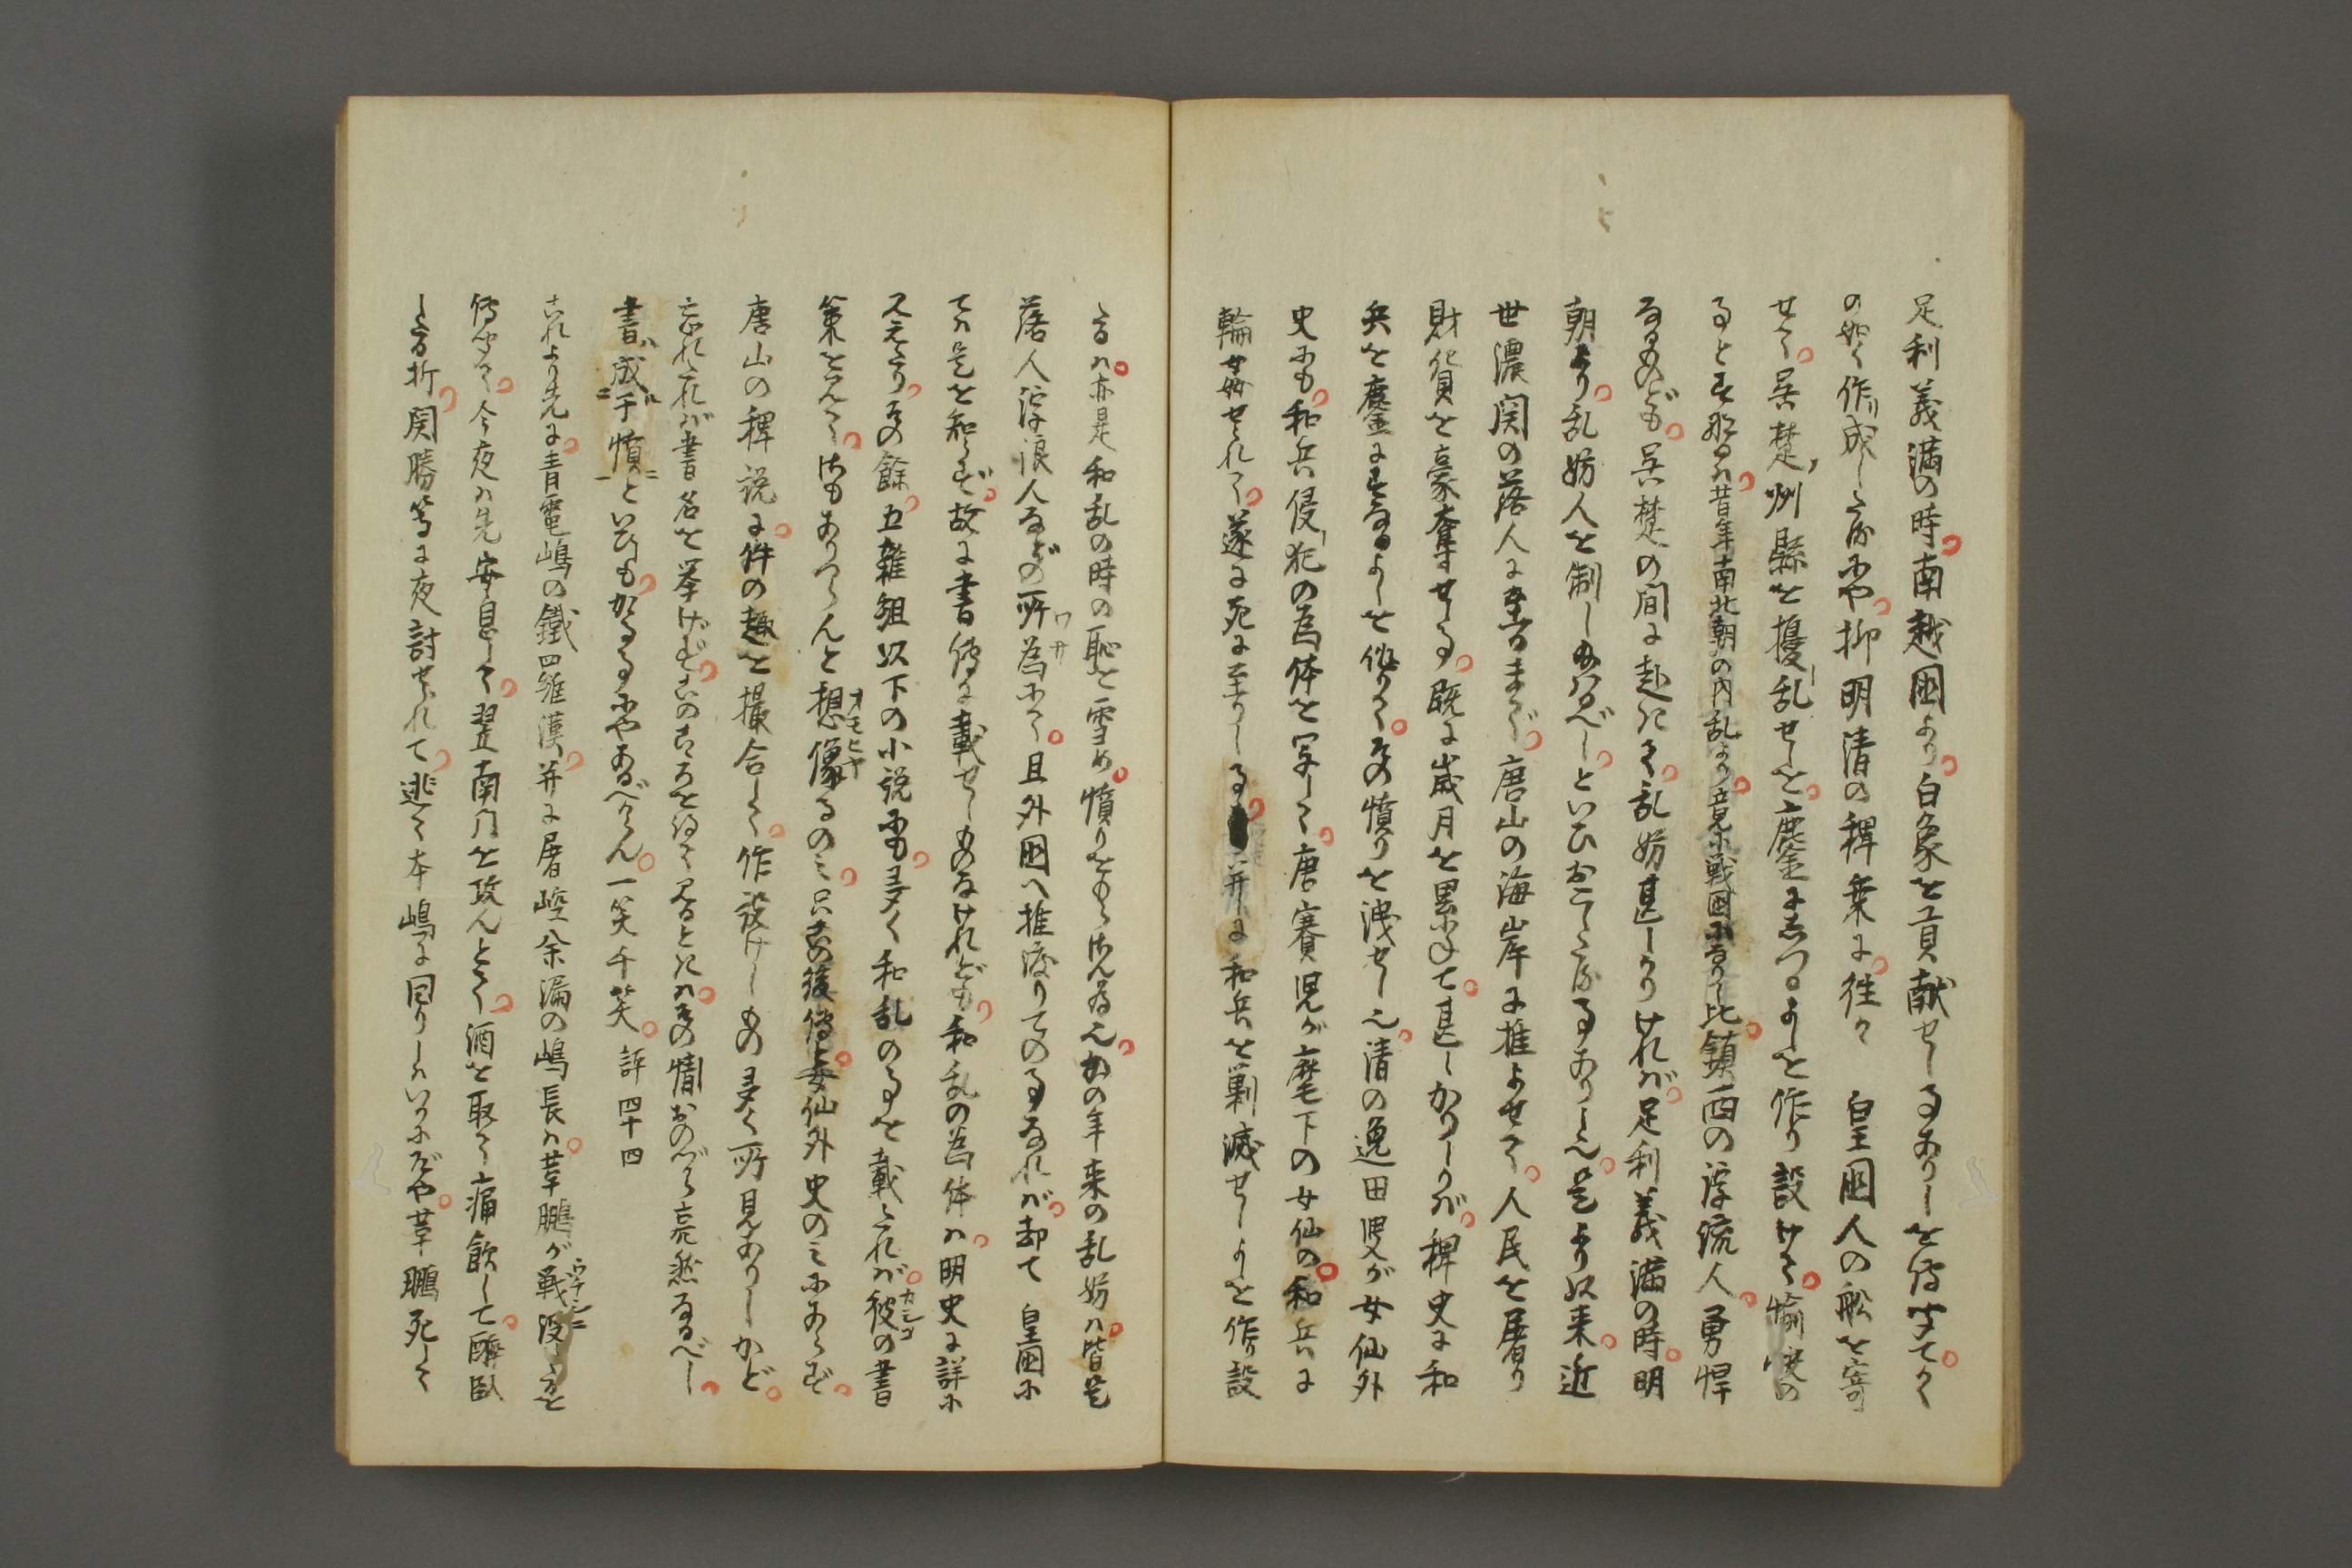 足利義満の時南越国より白象を貢献せし事ありしを伝聞てかく
の如く作り成したるにや抑明清の稗乗に往々　皇国人の船を寄
せて呉楚ノ州縣を擾乱せしを鏖にしつるよしを作り設けて愉快の
事とす那るハ昔年南北朝の内乱より竟に戦国になりし比鎮西の浮流人勇悍
なるものども呉楚の間に赴きて乱妨甚しかりければ足利義満の時明
朝より乱妨人を制し給ふべしといひおこしたる事ありし也是より以来近
世濃関の落人に至るまで唐山の海岸に推よせて人民を屠り
財貨を豪奪せる事既に歳月を累ねて甚しかりしかば稗史に和
兵を鏖にするよしを作りてその憤りを洩せし也清の逸田叟が女仙外
史にも和兵侵犯の為体を写して唐賽児が麾下の女仙の和兵に
輪姦せられて遂に死に至りし事并に和兵を剿滅せしよしを作り設
たるハ亦是和乱の時の恥を雪め憤りをもらさん為也かの年来の乱妨ハ皆是
落人浮浪人などの所為ワザにて且外国へ推渡りての事なれば却て　皇国に
てハ是を知らず故に書伝に載せしものなけれども和乱の為体ハ明史に詳に
見えたりその餘五雑組以下の小説にも多く和乱の事を載たれば彼カシコの書
策を見てさもありつらんと想像オモヒヤるのミ只この後伝と女仙外史のミにあらず
唐山の稗説に件の趣を撮合して作り設けしもの多く所見ありしかど
忘れたれば書名を挙けずこのこころを得て見るときハその情おのづから亮然なるべし
書ハ成ニ于憤ニ一といひしもかかる事にやあるべからん一笑千笑　評四十四
これより先に青霓嶋の鐵羅漢并に屠崆余漏の嶋長ハ革鵬が戦没ウチシニしたるを
傳聞て今夜ハ先安息して翌南門を攻んとて酒を取て痛飲して酔臥
したる折関勝等に夜討せられて逃て本嶋に回りしハいかにぞや革鵬死して